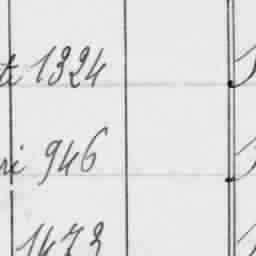 ti 1324
ri 946
1473